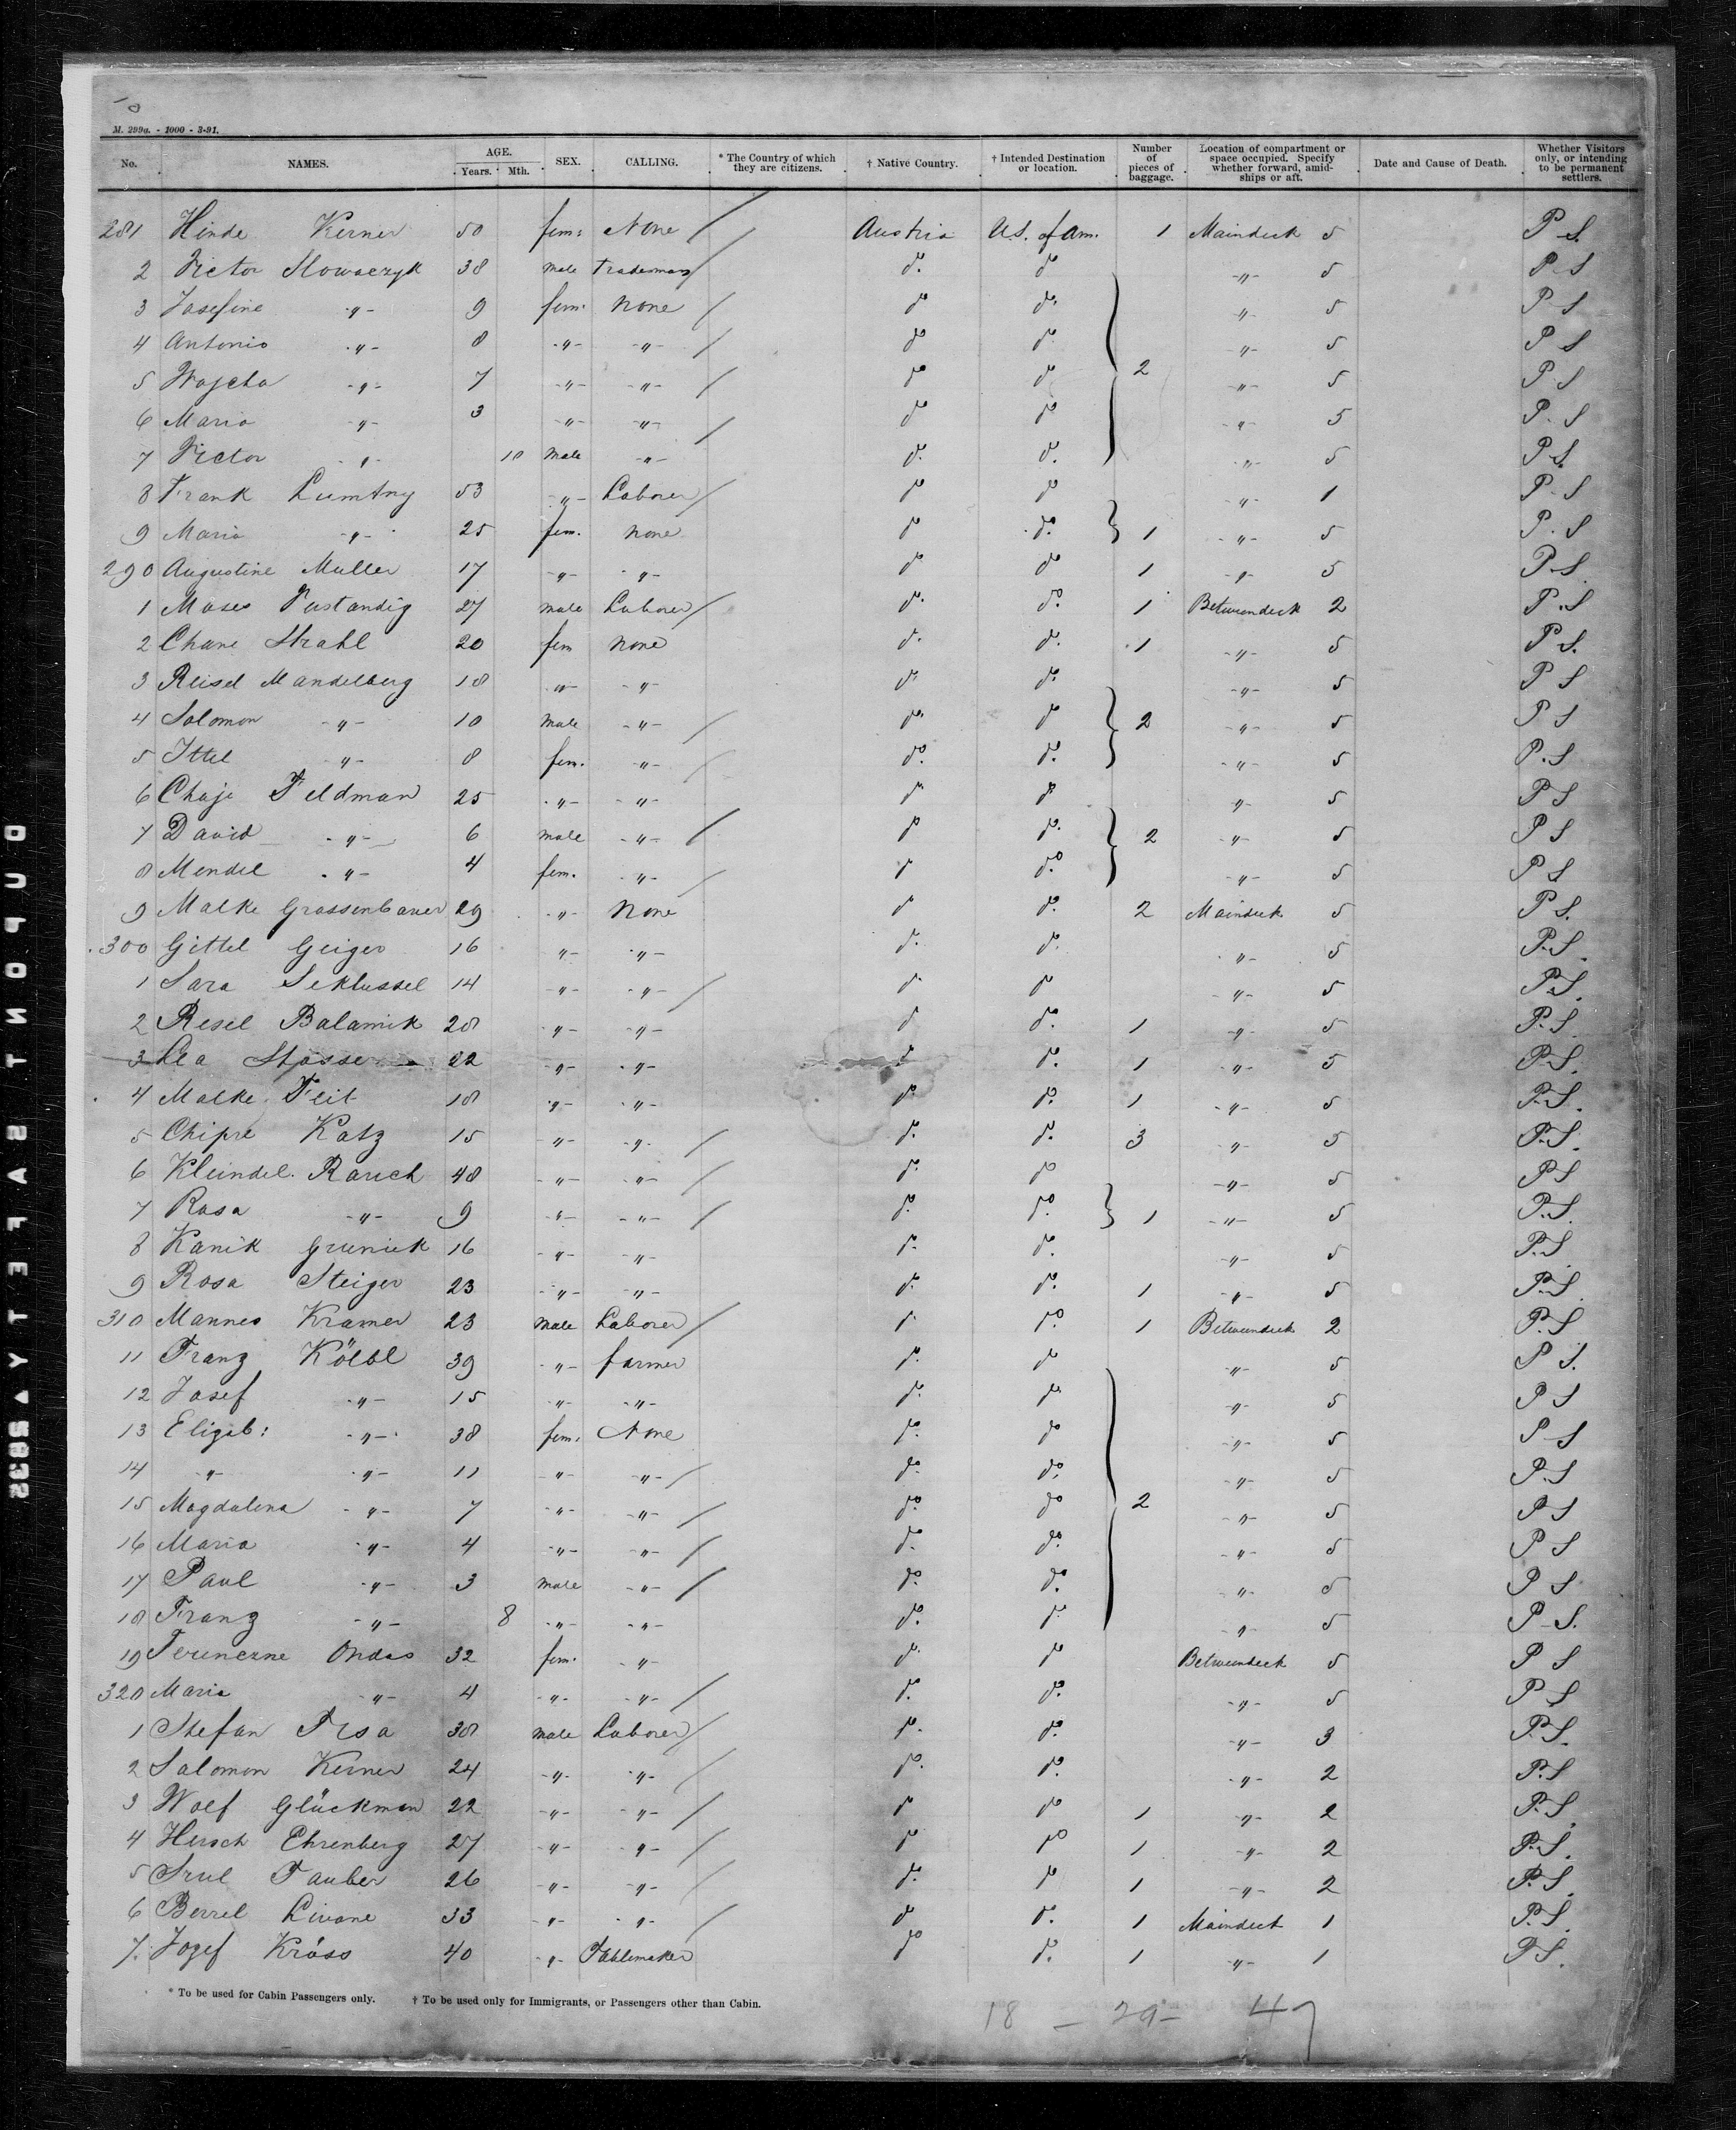 M. 299a. - 1000 - 3-91.
No. NAMES. AGE. Years. Mth. SEX. CALLING. * The Country of which they are citizens. † Native Country. † Intended Destination or location. Number of pieces of baggage. Location of compartment or space occupied. Specify whether forward, amidships or aft. Date and Cause of Death. Whether Visitors only, or intending to be permanent settlers.
281 Hinde Kerner 50 fem: None / Austria U.S. of Am. 1 Maindeck 5 P S.
2 Victor Slowaczyk 38 male Tradesman / do. do -"- 5 P S
3 Josefine -"- 9 fem. none / do do. -"- 5 P S
4 Antonio -"- 8 -"- -"- / do do. -"- 5 P S
5 Wojcha -"- 7 -"- -"- / do do 2 -"- 5 P S
6 Maria -"- 3 -"- -"- / do do -"- 5 P. S
7 Victor -"- 10 male -"- do. do. -"- 5 P S.
8 Frank Lumtny 53 -"- Laborer / do do -"- 1 P. S
9 Maria -"- 25 fem. none do do. 1 -"- 5 P. S
290 Augustine Muller 17 -"- -"- do do 1 -"- 5 P S.
1 Moses Pustandig 27 male Laborer / do. do. 1 Betweendeck 2 P. S
2 Chane Strahl 20 fem none do. do. 1 -"- 5 P S.
3 Reisel Mandelberg 18 -"- -"- do. do. -"- 5 P S
4 Salomon -"- 10 male -"- / do. do 2 -"- 5 P S
5 Ittel -"- 8 fem. -"- / do. do. -"- 5 P. S
6 Chaje Feldman 25 -"- -"- do. do. -"- 5 P S
7 David -"- 6 male -"- / do do. 2 -"- 5 P S
8 Mendel -"- 4 fem. -"- / do do. -"- 5 P S
9 Malke Grassenbauer 29 -"- None do do. 2 Maindeck 5 P S.
300 Gittel Geiger 16 -"- -"- do. do. -"- 5 P. S.
1 Sara Seklussel 14 -"- -"- / do. do -"- 5 P. S.
2 Resel Balamik 28 -"- -"- do do. 1 -"- 5 P. S.
3 Lea Stosser 22 -"- -"- do. do. 1 -"- 5 P. S.
4 Malke Feit 18 -"- -"- do. do. 1 -"- 5 P. S.
5 Chipre Katz 15 -"- -"- / do. do. 3 -"- 5 P. S.
6 Kleindel Rauch 48 -"- -"- / do. do -"- 5 P S
7 Rosa -"- 9 -"- -"- / do. do. 1 -"- 5 P. S.
8 Kanik Gruniek 16 -"- -"- do. do. -"- 5 P. S.
9 Rosa Steiger 23 -"- -"- do. do. 1 -"- 5 P. S.
310 Mannes Kramer 23 male Laborer / do. do. 1 Betweendeck 2 P. S
11 Franz Kölbl 39 -"- farmer do. do -"- 5 P S.
12 Josef -"- 15 -"- -"- do. do. -"- 5 P S
13 Elizab: -"- 38 fem. None do. do -"- 5 P S
14 -"- -"- 11 -"- -"- / do. do. -"- 5 P. S
15 Magdalena -"- 7 -"- -"- / do. do 2 -"- 5 P S
16 Maria -"- 4 -"- -"- / do. do. -"- 5 P S
17 Paul -"- 3 male -"- / do. do. -"- 5 P S
18 Franz -"- 8 -"- -"- do. do. -"- 5 P S.
19 Ferenczne Ondas 32 fem. -"- do. do Betweendeck 5 P S
320 Maria -"- 4 -"- -"- / do. do. -"- 5 P S
1 Stefan Trsa 38 male Laborer / do. do. -"- 3 P. S.
2 Salomon Kerner 24 -"- -"- / do. do. -"- 2 P. S
3 Wolf Glückman 22 -"- -"- / do do 1 -"- 2 P. S.
4 Hersch Ehrenberg 27 -"- -"- / do do 1 -"- 2 P. S.
5 Srul Tauber 26 -"- -"- / do. do 1 -"- 2 P. S.
6 Berrel Livane 33 -"- -"- / do do. 1 Maindeck 1 P. S.
7. Jozef Kröss 40 -"- Tablemaker do do. 1 -"- 1 P S.
* To be used for Cabin Passengers only. † To be used only for Immigrants, or Passengers other than Cabin.
18 - 29 - 47
DUPONT SAFETY 5832